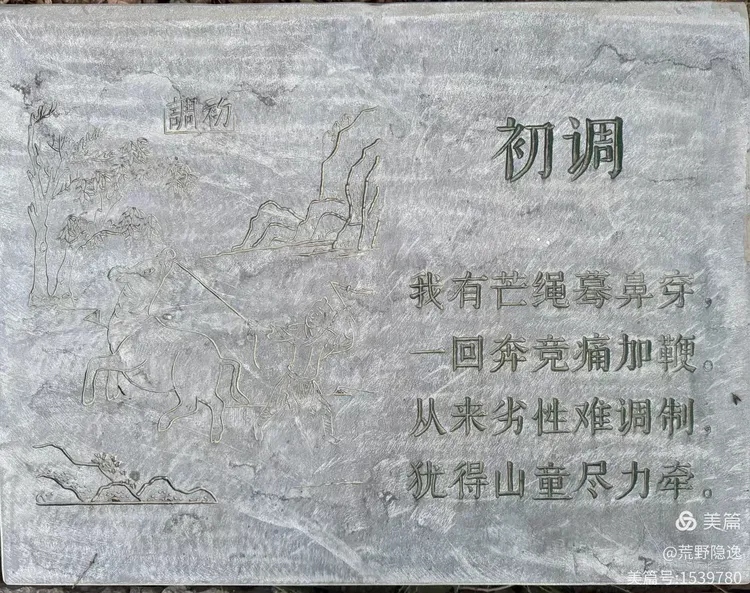 調初
初调
我有芒绳蓦鼻穿，
一回奔竞痛加鞭。
从来劣性难调制，
犹得山童尽力牵。
美篇
@荒野隐逸
美篇号:1539780